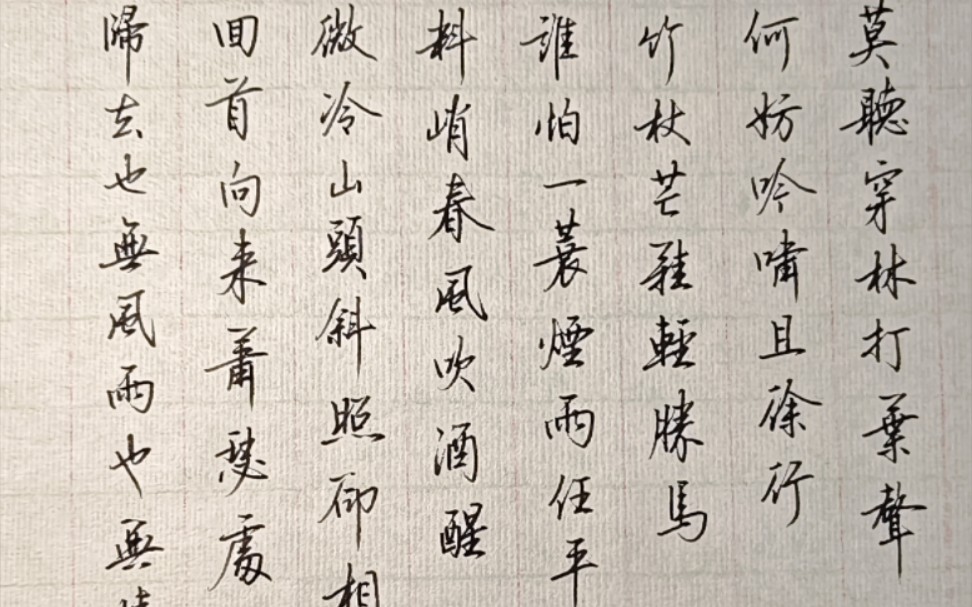 莫聽穿林打葉聲
何妨吟嘯且徐行
竹杖芒鞋輕勝馬
誰怕一蓑煙雨任平
料峭春風吹酒醒
微冷山頭斜照却相
回首向来蕭瑟處
歸去也無風雨也無